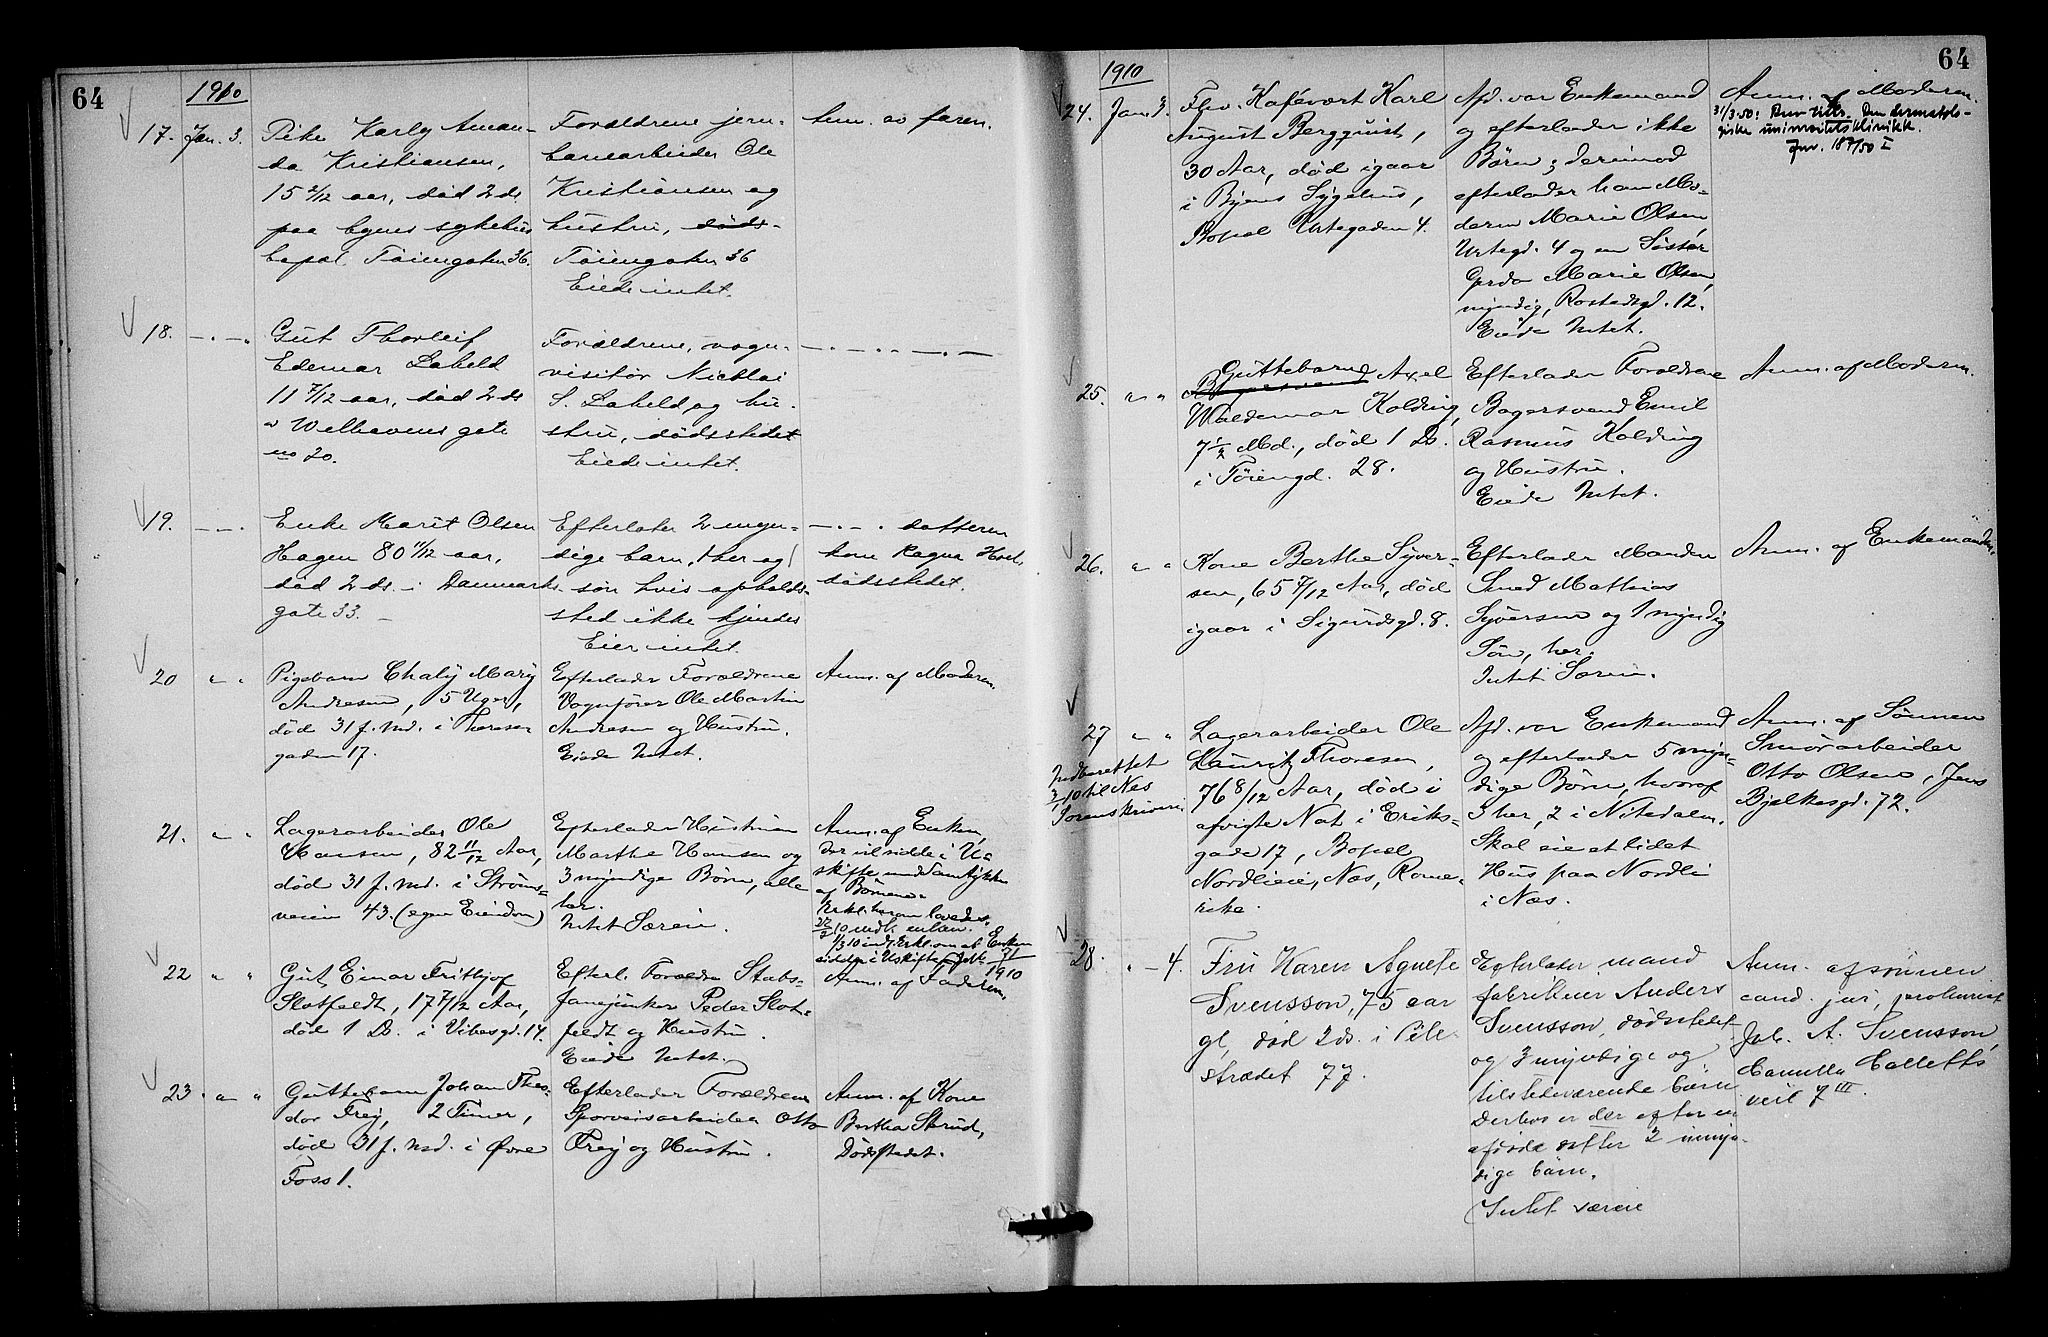 64
1910
17. Jan. 3.
Pike Karly Aman-
da Kristiansen,
15 2/12 aar, død 2 ds
paa byens sykehus
bopæl Tøiengaten 36.
Forældrene jern-
banearbeider Ole
Kristiansen og
hustru, døds-
Tøiengaten 36
Eiede intet.
av faren.
18. — . — „
Gut Thorleif
Edemar Labeld
11 7/12 aar, død 2 ds
Welhavens gate
no 20.
Forældrene, vogn-
visitør Nicolai
S. Labeld og hu-
stru, dødsstedet
Eiede intet.
— . — . . — . —
19. — . — .
Enke Marit Olsen
Hagen 80 11/12 aar,
død 2 ds. i Danmarks
gate 33.
Efterlater 2 myn-
dige barn, 1 her og 1
søn hvis opholds-
sted ikke kjendes
Eier intet.
— . — . datteren
kone Ragna
dødsstedet.
20 „ „
Pigebarn Chaly Mary
Andresen, 5 Uger,
død 31 f. Md. i Therese
gaden 17.
Efterlader Forældrene
Vognfører Ole Martin
Andresen og Hustru.
Eiede Intet.
Anm. af Moderen.
21. „ „
Lagerarbeider Ole
Hansen, 82 11/12 Aar,
død 31 f. Md. i Strøms-
veien 43. (egen Eiendom)
Efterlader Hustruen
Marthe Hansen og
3 myndige Børn, alle
her.
Intet Særeie.
Anm. af Enken,
der vil sidde i U-
skifte med Samtykke
af Børnene.
Erkl. herom lovedes.
1/3 10 indk. Erkl. om at Enken
sidder i Uskifte 71
1910
22 „ „
Gut Einar Frithjof
Slotfeldt, 17 7/12 Aar,
død 1 Ds. i Vibesgd. 14.
Efterl. Forældre Stabs-
fanejunker Peder Slot-
feldt og Hustru.
Eiede Intet.
Anm. af Faderen.
23 „ „
Guttebarn Johan Theo-
dor Frey, 2 Timer,
død 31 f. Md. i Øvre
Foss 1.
Efterlader Forældrene
Sporveisarbeider Otto
Frey og Hustru.
Anm. af Kone
Bertha Strud,
Dødsstedet.
64
1910
24. Jan. 3.
Fhv. Kafévært Karl
August Bergquist,
30 Aar, død igaar
i Byens Sygehus,
Bopæl Urtegaden 4.
Afd. var Enkemand
og efterlader ikke
Børn; derimod
efterlader han Mo-
deren Marie Olsen
Urtegd. 4 og en Søster
Gerda Marie Olsen,
myndig, Rostedsgd. 12.
Eiede Intet.
Anm. af Moderen.
31/3 50: Den dermatolo-
giske universitetsklinikk.
Jnr. 187/50 I
25. „ „
Guttebarn Axel
Waldemar Kolding,
7 1/2 Md., død 1 Ds.
i Tøiengd. 28.
Efterlader Forældrene
Bagersvend Emil
Rasmus Kolding
og Hustru.
Eiede Intet.
Anm. af Moderen.
26. „ „
Kone Berthe Syver-
sen, 65 7/12 Aar, død
igaar i Sigurdsgd. 8.
Efterlader Manden
Smed Mathias
Syversen og 1 myndig
Søn, her.
Intet Særeie.
Anm. af Enkemanden.
27 „ „
Indberettet
3/1 10 til Nes
Sorenskriveri
Lagerarbeider Ole
Lauritz Thoresen,
76 8/12 Aar, død i
afvigte Nat i Eriks-
gade 17, Bopæl
Nordlieie, Næs, Rome-
rike.
Afd. var Enkemand
og efterlader 5 myn-
dige Børn, hvoraf
3 her, 2 i Nitedalen.
Skal eie et lidet
Hus paa Nordli
i Næs.
Anm. af Sønnen
Smørarbeider
Otto Olsen, Jens
Bjelkesgd. 72.
28. „ — 4.
Fru Karen Agnete
Svensson, 75 aar
gl, død 2 ds. i Pile-
strædet 77.
Efterlater mand
fabrikeier Anders
Svensson, dødsstedet
og 3 myndige og
tilstedeværende børn
Derhos er der efter en
afdød datter 2 umyn-
dige børn.
Intet særeie
Anm. af sønnen
cand. jur, prokurist
Joh. A. Svensson,
Camilla Colletts
vei 7 III.